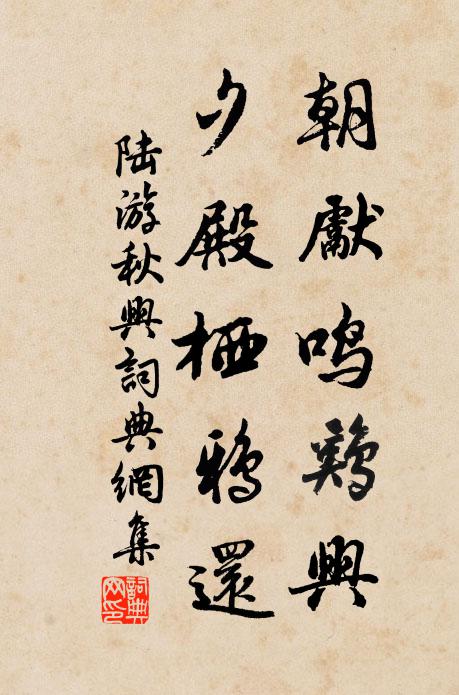 朝獻鳴鷄興
夕殿栖鴉還
陸游秋興詞典網集
詞典